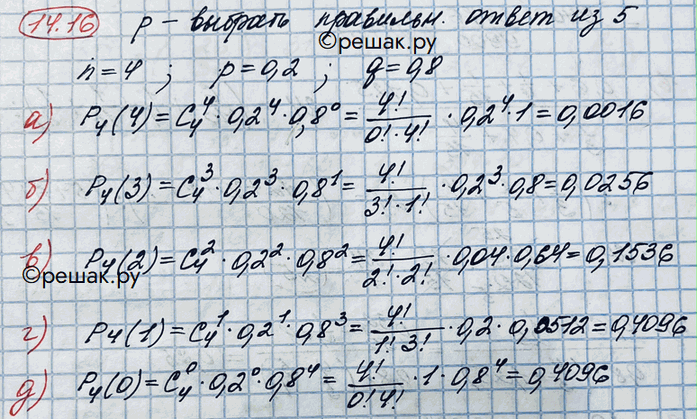 14.16 р – выбрать правильн. ответ из 5
©решак.ру
n = 4 ; p = 0,2 ; q = 0,8
а) P₄(4) = C₄⁴ · 0,2⁴ · 0,8⁰ = 4!/(0! · 4!) · 0,2⁴ · 1 = 0,0016
б) P₄(3) = C₄³ · 0,2³ · 0,8¹ = 4!/(3! · 1!) · 0,2³ · 0,8 = 0,0256
в) P₄(2) = C₄² · 0,2² · 0,8² = 4!/(2! · 2!) · 0,04 · 0,64 = 0,1536
©решак.ру
г) P₄(1) = C₄¹ · 0,2¹ · 0,8³ = 4!/(1! 3!) · 0,2 · 0,0512 = 0,4096
д) P₄(0) = C₄⁰ · 0,2⁰ · 0,8⁴ = 4!/(0! 4!) · 1 · 0,8⁴ = 0,4096